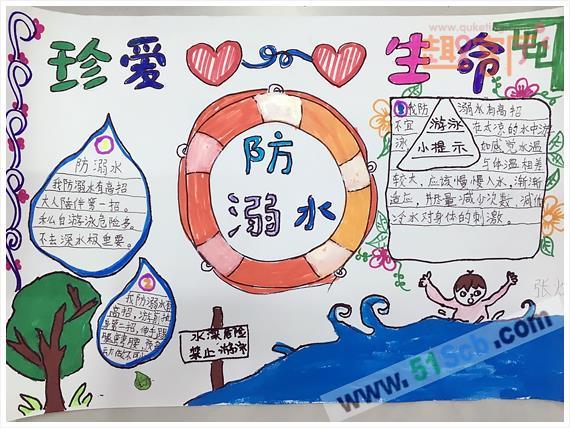 www.quketi
珍爱 生命
防
溺水
①
防溺水
我防溺水有高招
大人陪伴第一招。
私自游泳危险多。
不去深水极重要。
②
我防溺水有
高招,游
第一招,伸手踢
水深危险
禁止游泳
③我防溺水有高招
游泳
小提示
不宜在太凉的水中游
泳 如感觉水温
与体温相差
较大,应该慢慢入水,渐渐
适应,尽量减少次数,减低
冷水对身体的刺激。
www.51Scb.com